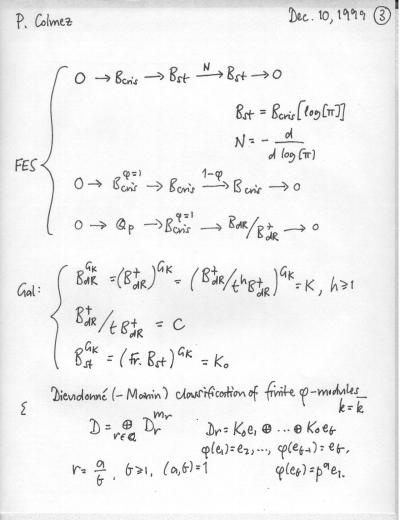 P. Colmez Dec. 10, 1999 ③
0 → B_cris → B_st →^N B_st → 0
B_st = B_cris [log[π]]
N = - d / d log[π]
FES
0 → B_cris^{φ=1} → B_cris →^{1-φ} B_cris → 0
0 → Q_p → B_cris^{φ=1} → B_dR/B_dR^+ → 0
Gal: B_dR^{G_K} = (B_dR^+)^{G_K} = (B_dR^+/t^h B_dR^+)^{G_K} = K, h≥1
B_dR^+/t B_dR^+ = C
B_st^{G_K} = (Fr. B_st)^{G_K} = K_0
Dieudonné (-Manin) classification of finite φ-modules
k = k̄
D = ⊕_{r∈Q} D_r^{m_r} D_r = K_0 e_1 ⊕ ... ⊕ K_0 e_b
φ(e_1) = e_2, ..., φ(e_{b-1}) = e_b,
r = a/b, b≥1, (a,b)=1 φ(e_b) = p^a e_1.